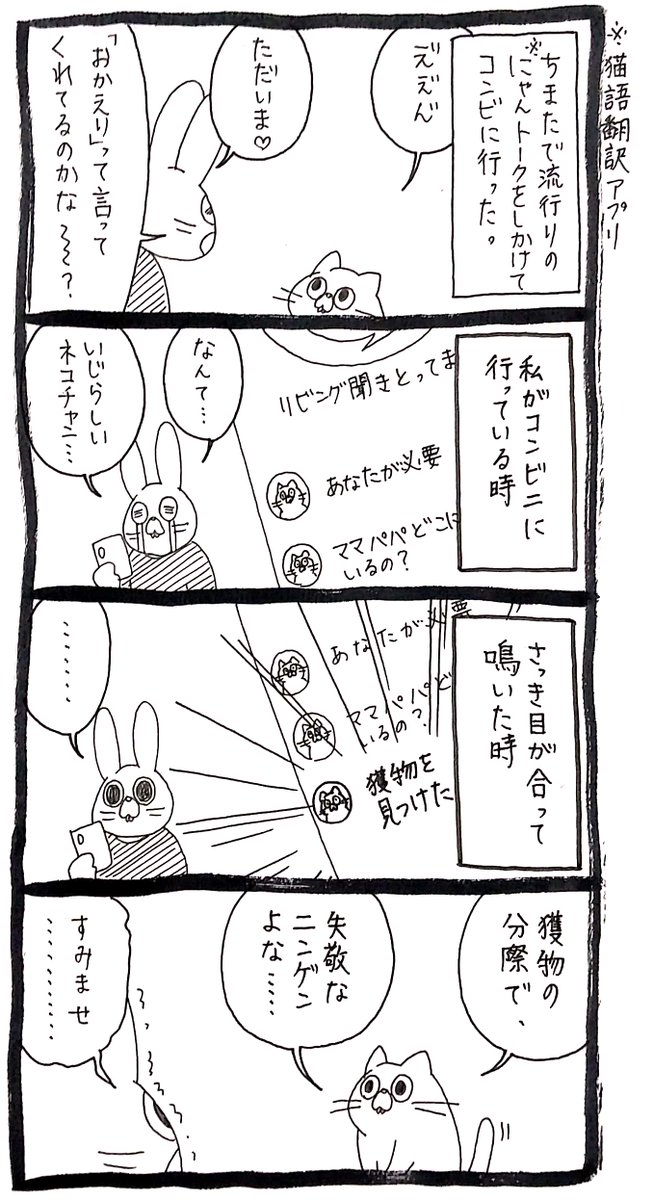 ※猫語翻訳アプリ
ちまたで流行りの
※にゃんトークをしかけて
コンビに行った。
ど゛え゛ん゛
ただいま♡
「おかえり」って言って
くれてるのかな～～?
私がコンビニに
行っている時
リビング聞きとってま
あなたが必要
ママパパどこに
いるの?
なんて…
いじらしい
ネコチャン…
さっき目が合って
鳴いた時
あなたが必要
ママパパど
いるの?
獲物を
見つけた
………
獲物の
分際で、
失敬な
ニンゲン
よな……
すみませ
…………